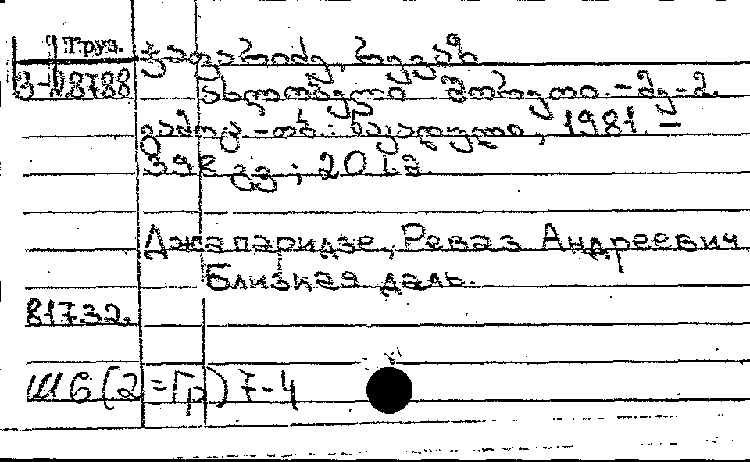 Груз.
3-18788
ჯაფარიძე, რევაზ
ახლობელი შორეთი. - მე-2.
გამოც. - თბ.: ნაკადული, 1981. -
398 გვ ; 20 სმ.
Джапаридзе, Реваз Андреевич
Близкая даль.
81732.
Ш6(2=Гр)7-4